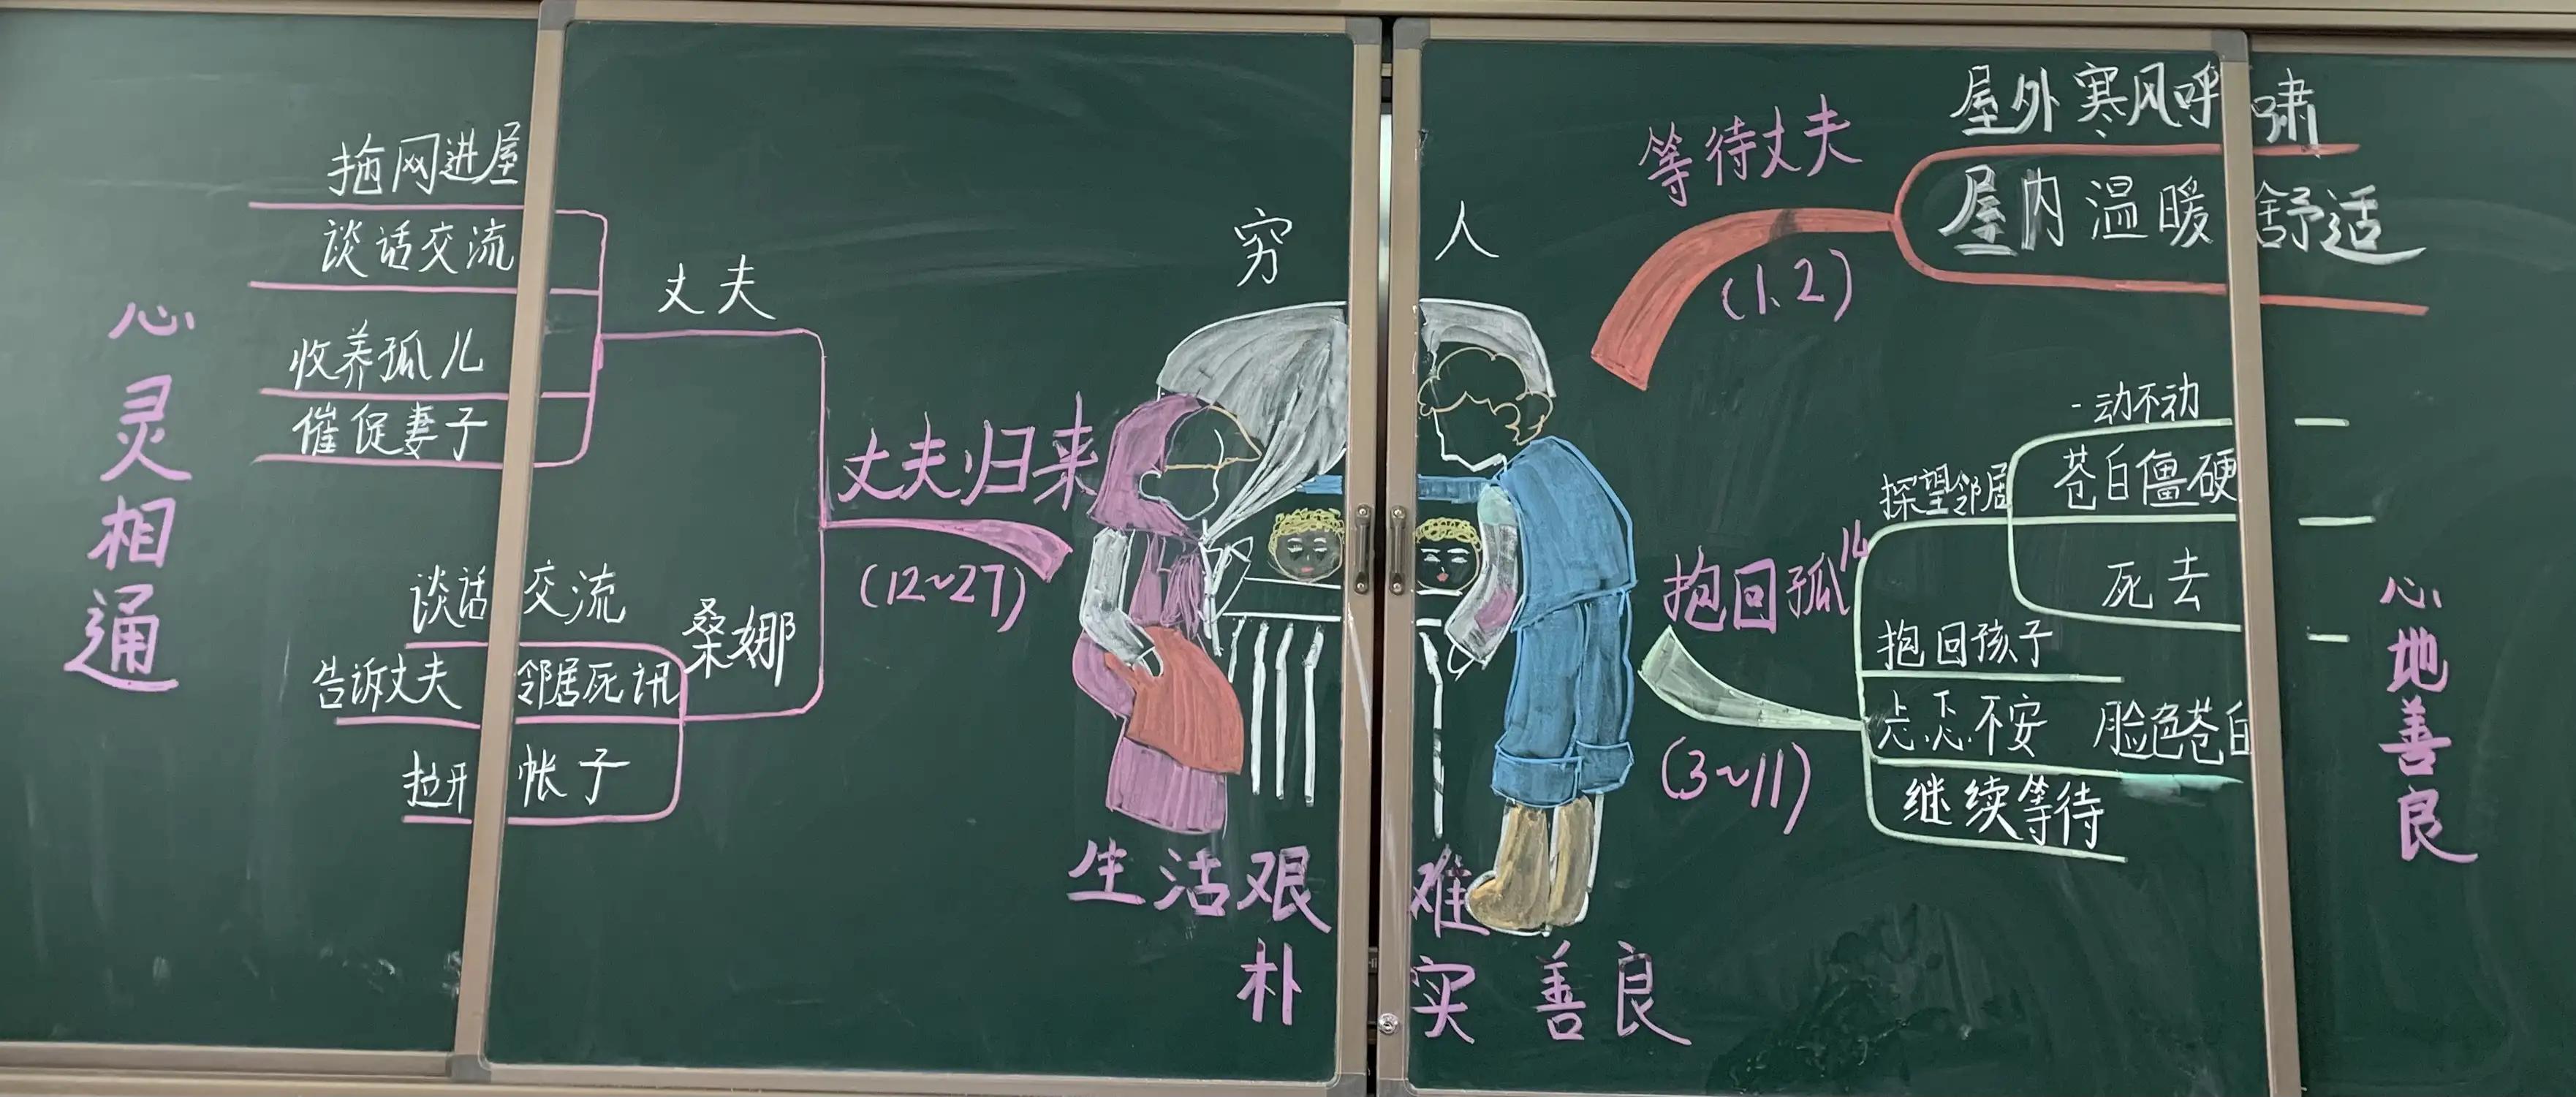 穷人
等待丈夫
(1、2)
屋外寒风呼啸
屋内温暖舒适
抱回孤儿
(3~11)
探望邻居
一动不动
苍白僵硬
死去
抱回孩子
忐忑不安 脸色苍白
继续等待
心地善良
丈夫归来
(12~27)
丈夫
拖网进屋
谈话交流
收养孤儿
催促妻子
桑娜
谈话交流
告诉丈夫邻居死讯
拉开帐子
心灵相通
生活艰难
朴实善良